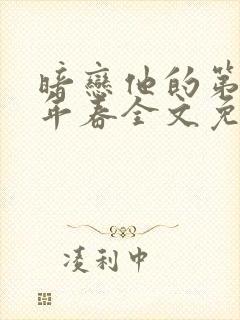 暗戀他的第
年春全文免
淩利中